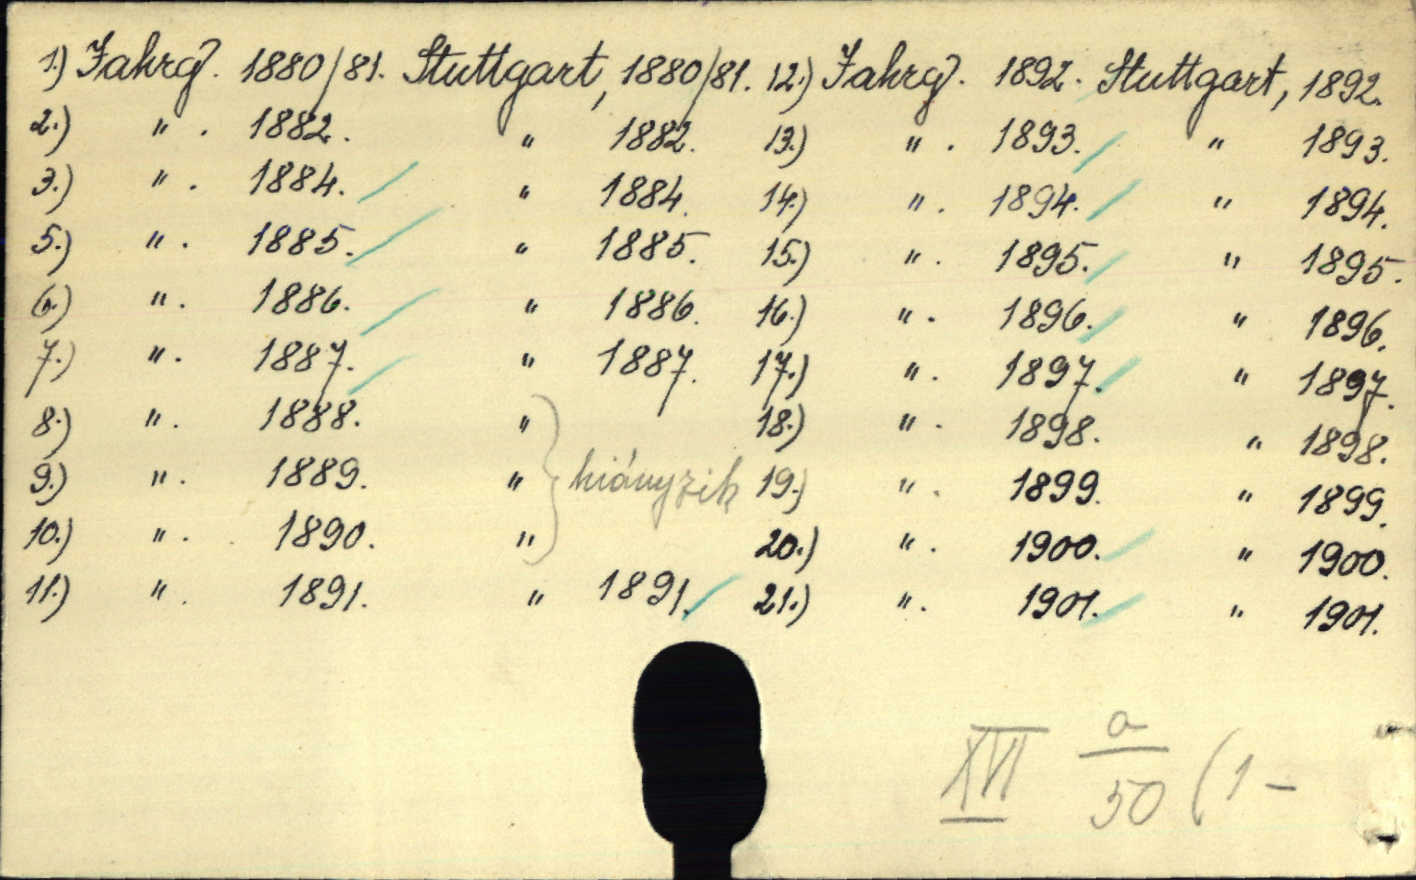 1.) Jahrg. 1880/81. Stuttgart, 1880/81.
2.) " . 1882. " 1882.
3.) " . 1884. " 1884.
5.) " . 1885. " 1885.
6.) " . 1886. " 1886.
7.) " . 1887. " 1887.
8.) " . 1888. "
9.) " . 1889. " } hiányzik
10.) " . 1890. "
11.) " . 1891. " 1891.
12.) Jahrg. 1892. Stuttgart, 1892.
13.) " . 1893. " 1893.
14.) " . 1894. " 1894.
15.) " . 1895. " 1895.
16.) " . 1896. " 1896.
17.) " . 1897. " 1897.
18.) " . 1898. " 1898.
19.) " . 1899. " 1899.
20.) " . 1900. " 1900.
21.) " . 1901. " 1901.
XVI a/50 (1-